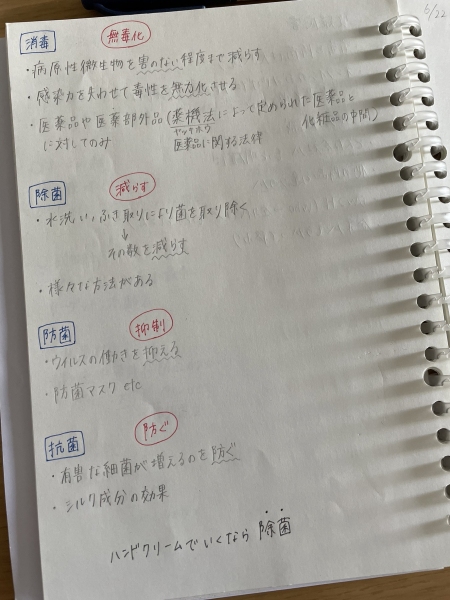 5/22
消毒 無毒化
・病原性微生物を害のない程度まで減らす
・感染力を失わせて毒性を無力化させる
・医薬品や医薬部外品(薬機法によって定められた医薬品と
に対してのみ ヤッキホウ 化粧品の中間)
医薬品に関する法律
除菌 減らす
・水洗い、ふき取りにより菌を取り除く
↓
その数を減らす
・様々な方法がある
防菌 抑制
・ウイルスの働きを抑える
・防菌マスク etc
抗菌 防ぐ
・有害な細菌が増えるのを防ぐ
・シルク成分の効果
ハンドクリームでいくなら 除菌